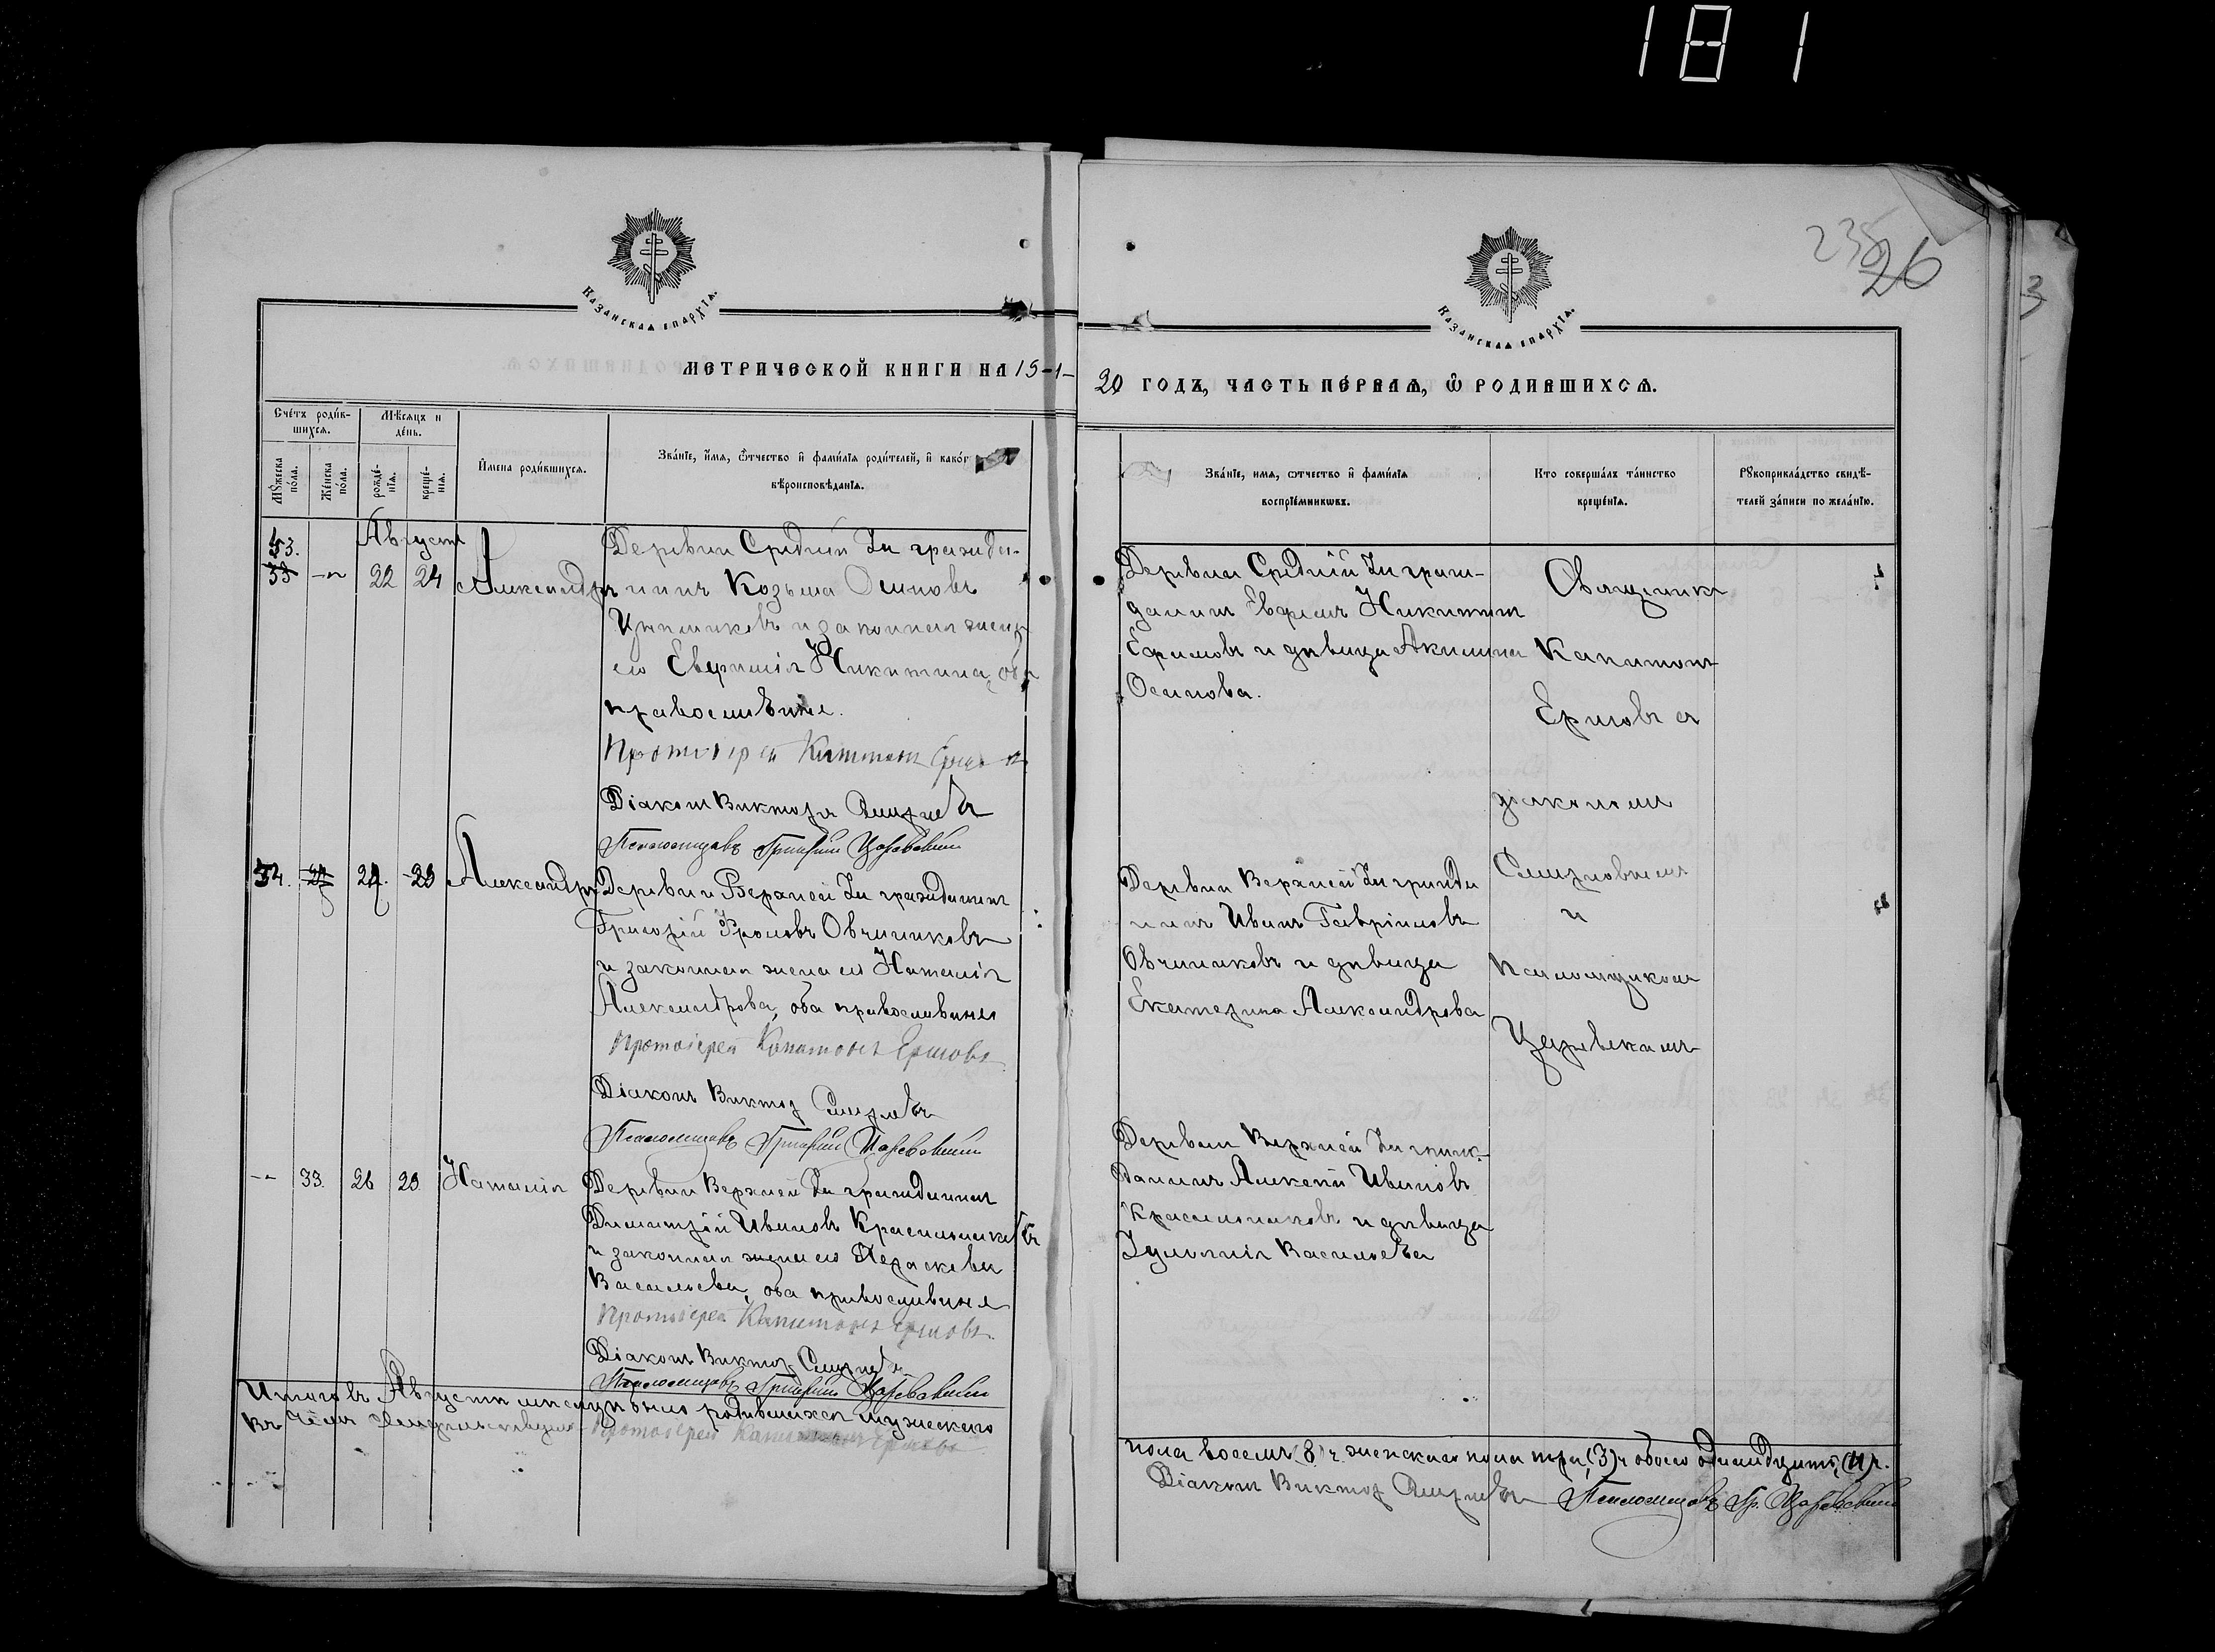 181
235
26
3
Казанская епархїѧ.
Казанская епархїѧ.
МЕТРИЧЕСКОЙ КНИГИ НА 19-1-
20 ГОДЪ, ЧАСТЬ ПЕРВАЯ, Ѡ РОДИВШИХСѦ.
Счетъ родив-
шихсѧ.
Мѣсяцъ и
день.
Имена родившихсѧ.
Званїе, имѧ, ѿчество и фамилїя родителей, и каког
вѣроисповѣданїѧ.
Мꙋжеска
пола.
Женска
пола.
рожде-
нїѧ.
креще-
нїѧ.
Званїе, имѧ, ѿчество и фамилїѧ
воспрїемникѡвъ.
Кто совершалъ таинство
крещенїѧ.
Рꙋкоприкладство свидѣ-
телей записи по желанїю.
Августъ
53.
33
22 24 Александръ
Деревни Средній Ія гражда-
нинъ Козьма Осиповъ
и законная жена
его Евфимія Никитина, оба
православные.
Протоіерей Капитонъ Ершовъ
Діаконъ Викторъ Смирновъ
Псаломщикъ Григорій Царевскій
Деревни Средній Ія граж-
данинъ Ефремъ Никитинъ
Ефимовъ и дѣвица Акилина
Осипова.
Священникъ
Капитонъ
Ершовъ съ
діакономъ
Смирновымъ
и
псаломщикомъ
Царевскимъ
34. 24. 29 Александръ
Деревни Верхней Ія гражданинъ
Григорій Фроловъ Овчинниковъ
и законная жена его Наталія
Александрова, оба православные
Протоіерей Капитонъ Ершовъ
Діаконъ Викторъ Смирновъ
Псаломщикъ Григорій Царевскій
Деревни Верхней Ія гражда
нинъ Иванъ Гавріиловъ
Овчинниковъ и дѣвица
Екатерина Александрова
33. 26 29. Наталія
Деревни Верхней Ія гражданинъ
Димитрій Ивановъ Красильниковъ
и законная жена его Параскева
Васильева, оба православные
Протоіерей Капитонъ Ершовъ.
Діаконъ Викторъ Смирновъ
Псаломщикъ Григорій Царевскій
Деревни Верхней Ія граж-
данинъ Алексѣй Ивановъ
Красильниковъ и дѣвица
Іуліанія Васильева
Итого въ Августѣ мѣсяцѣ было родившихся мужескаго
пола восемь (8) и женскаго пола три (3) и обоего одиннадцать (11).
Въ чемъ свидѣтельствуемъ Протоіерей Капитонъ Ершовъ
Діаконъ Викторъ Смирновъ Псаломщикъ Гр. Царевскій